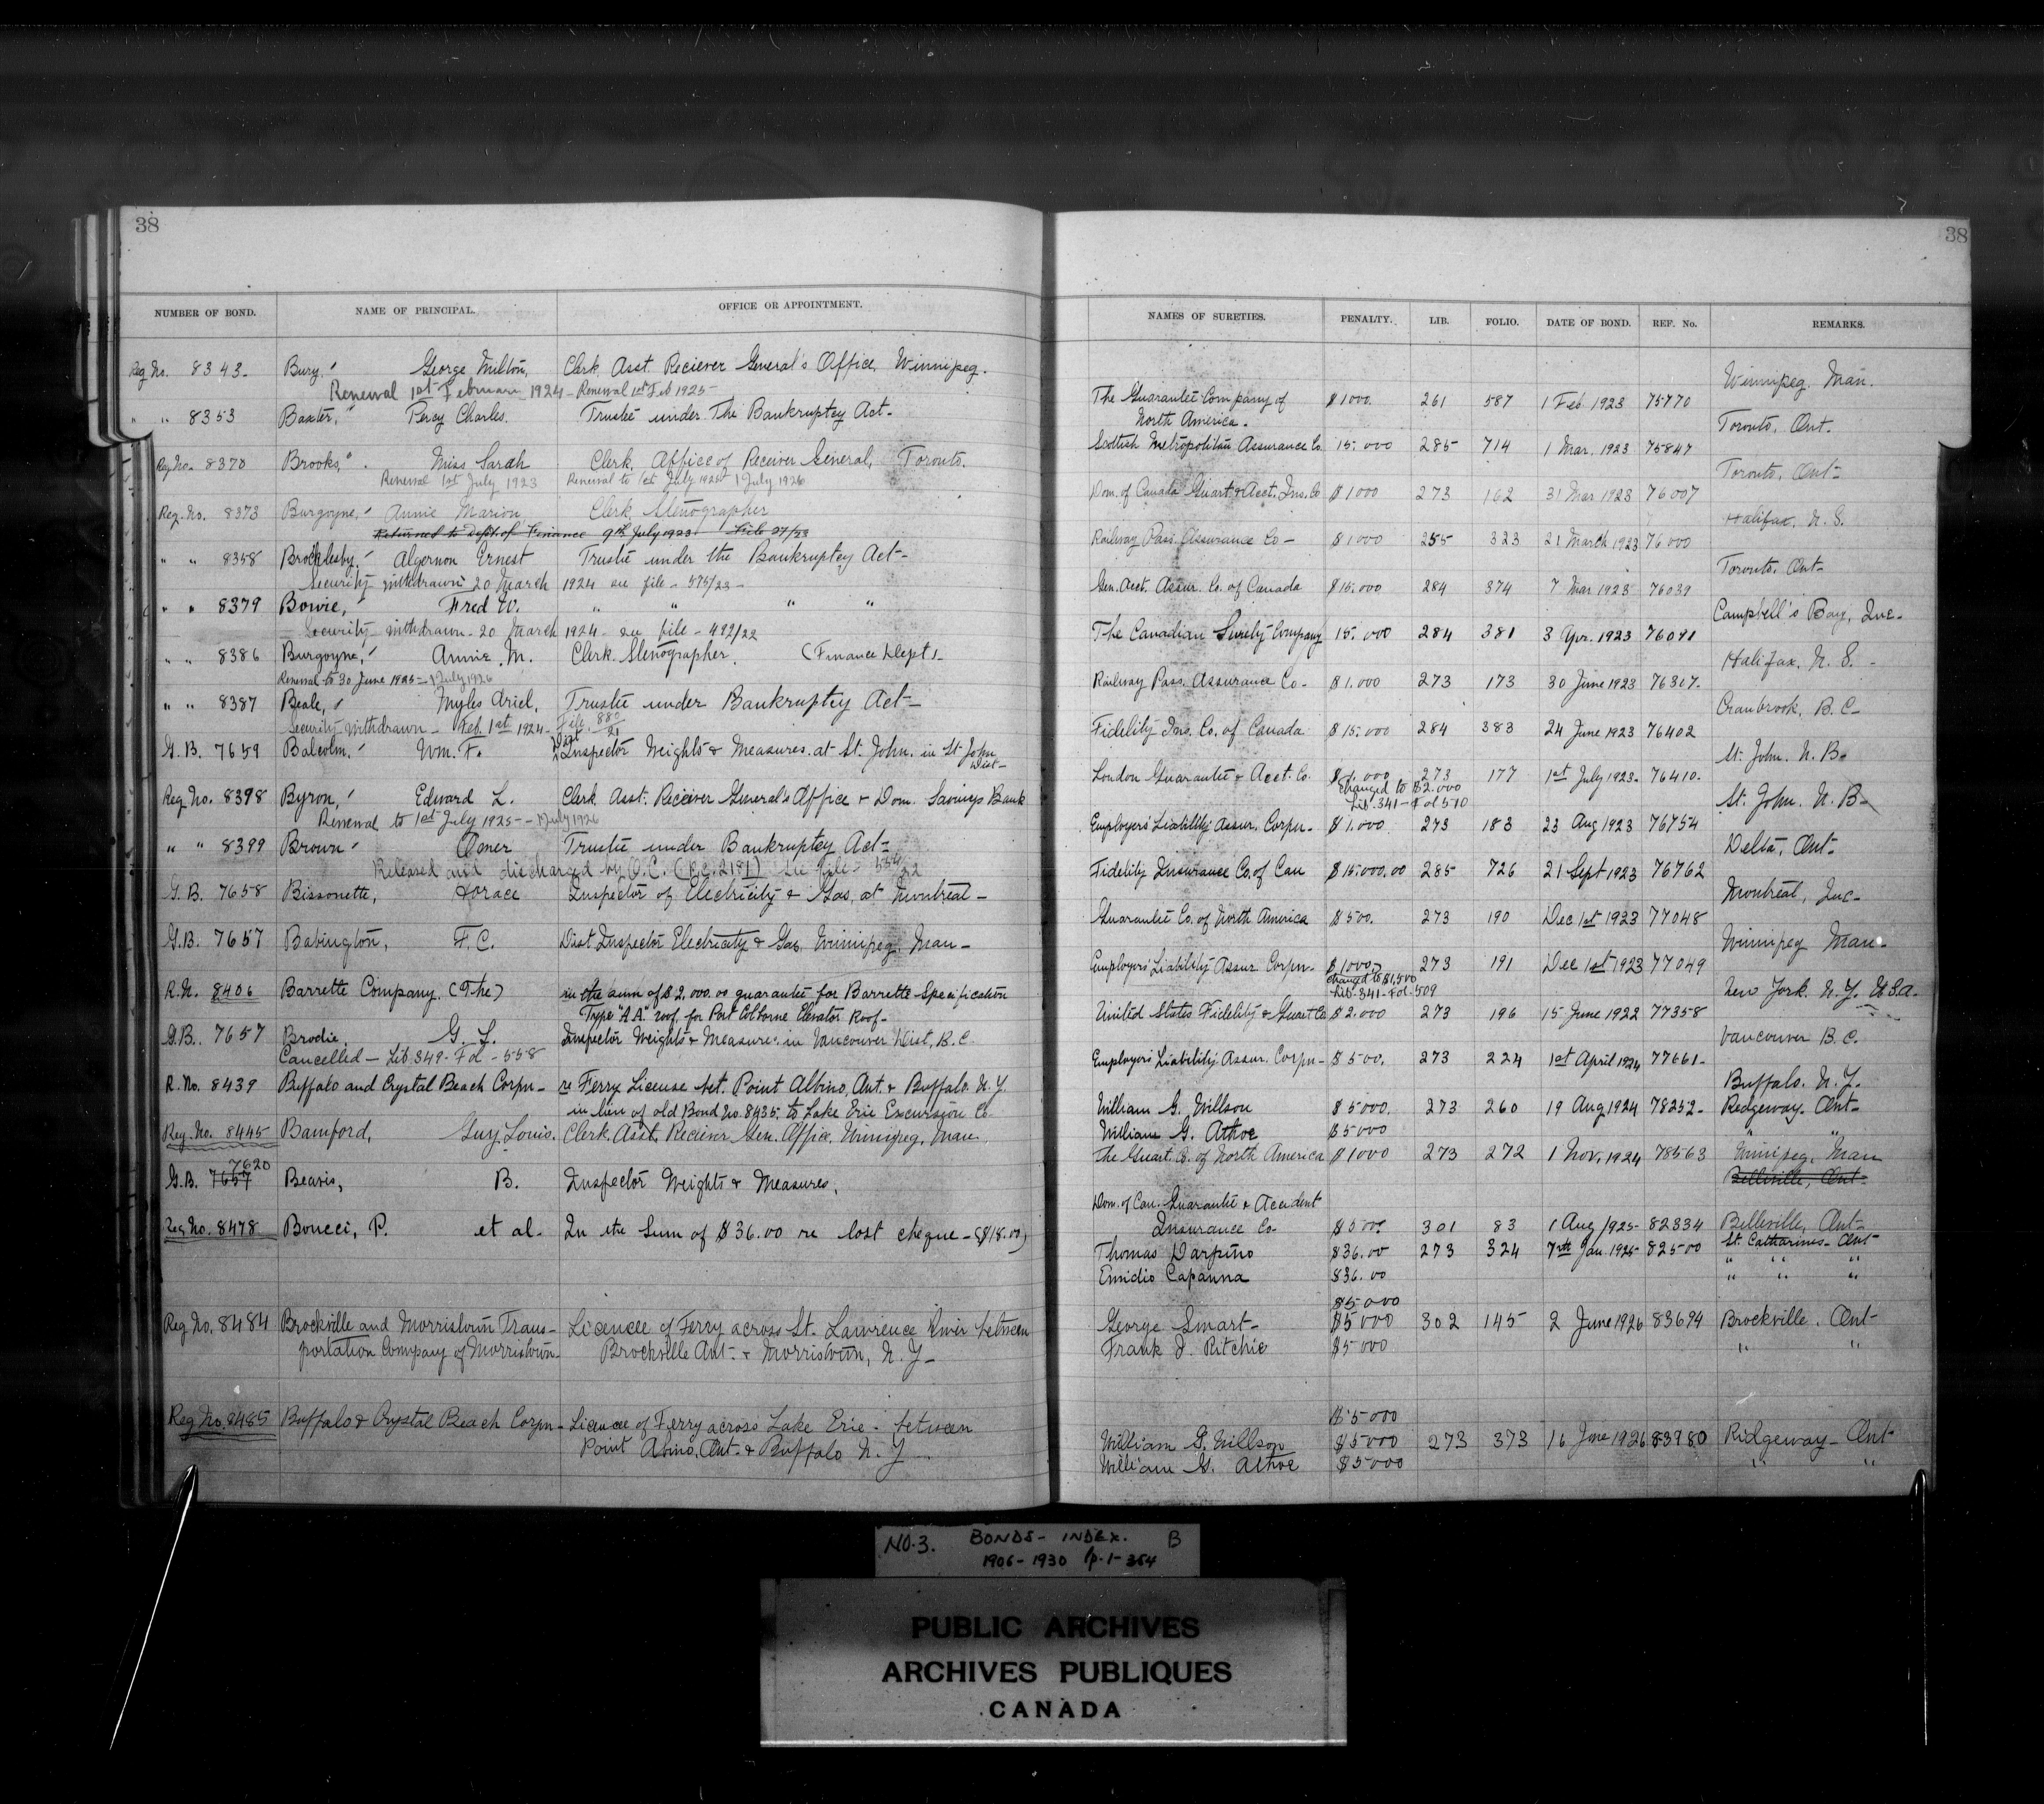 38
NUMBER OF BOND. NAME OF PRINCIPAL. OFFICE OR APPOINTMENT.
Reg No. 8343. Bury, George Milton, Clerk Asst. Reciever General's Office, Winnipeg.
Renewal 1st February 1924 - Renewal 1st Feb 1925-
" " 8353 Baxter, Percy Charles. Trustee under The Bankruptcy Act-
Reg No. 8370 Brooks, Miss Sarah Clerk, Office of Receiver General, Toronto.
Renewal 1st July 1923 Renewal to 1st July 1925 1 July 1926
Reg. No. 8373 Burgoyne, Annie Marion Clerk Stenographer
Returned to Dept. of Finance 9th July 1923. File 27/23
" " 8358 Brocklesby, Algernon Ernest Trustee under the Bankruptcy Act-
Security withdrawn 20 March 1924 see file - 575/23 -
" " 8379 Bowie, Fred W. " " " "
Security withdrawn - 20 March 1924 - see file - 492/22
" " 8386 Burgoyne, Annie. M. Clerk. Stenographer. (Finance Dept)-
Renewal to 30 June 1925 - 1 July 1926
" " 8387 Beale, Myles Ariel, Trustee under Bankruptcy Act-
Security Withdrawn - Feb. 1st 1924 - File 880/21
G.B. 7659 Balcolm. Wm. F. Dist Inspector Weights & Measures. at St. John. in St John
Dist-
Reg No. 8398 Byron, Edward L. Clerk Asst. Reciever General's Office & Dom. Savings Bank
Renewal to 1st July 1925 - 1 July 1926
" " 8399 Brown Omer Trustee under Bankruptcy Act-
Released and discharged by O.C. (P.C. 2181) see File - 554/22
G.B. 7658 Bissonette, Horace Inspector of Electricity & Gas, at Montreal -
G.B. 7657 Babington, F.C. Dist Inspector Electricity & Gas, Winnipeg. Man -
R.N. 8406 Barrette Company. (The) in the sum of $2,000.00 guarantee for Barrette Specification
Type "AA" roof for Port Colborne Elevator Roof-
G.B. 7657 Brodie, G. L. Inspector Weights & Measures. in Vancouver Dist, B.C.
Cancelled - Lib 349 - Fol - 558
R. No. 8439 Buffalo and Crystal Beach Corpn - re Ferry License bet. Point Albino, Ont. & Buffalo. N.Y.
in lieu of old Bond No. 8435. to Lake Erie Excursion Co.
Reg. No. 8445 Bamford, Guy Louis. Clerk Asst. Reciever Gen. Office, Winnipeg, Man.
7620
G.B. 7657 Beavis, B. Inspector Weights & Measures.
Reg No. 8478 Boucci, P. et al. In the sum of $36.00 re lost cheque - ($18.00)
Reg No. 8484 Brockville and Morristown Trans- Licencee of Ferry across St. Lawrence River between
portation Company of Morristown- Brockville Ont. & Morristown, N.Y-
Reg No. 8485 Buffalo & Crystal Beach Corpn - Licencee of Ferry across Lake Erie - between
Point Abino, Ont. & Buffalo N.Y -
38
NAMES OF SURETIES. PENALTY. LIB. FOLIO. DATE OF BOND. REF. No. REMARKS.
Winnipeg. Man.
The Guarantee Company of $1000. 261 587 1 Feb 1923 75770
North America. Toronto. Ont-
Scottish Metropolitan Assurance Co. 15,000 285 714 1 Mar. 1923 75847
Toronto, Ont-
Dom. of Canada Guart & Acct. Ins. Co $1000 273 162 31 Mar 1923 76007
Halifax, N.S.
Railway Pass. Assurance Co - $1000 255 323 21 March 1923 76000
Toronto. Ont-
Gen. Acct. Assur. Co. of Canada $15,000 284 374 7 Mar 1923 76039
Campbell's Bay, Que-
The Canadian Surety Company 15,000 284 381 3 Apr. 1923 76091
Halifax. N.S. -
Railway Pass. Assurance Co - $1,000 273 173 30 June 1923 76307.
Cranbrook, B.C-
Fidelity Ins. Co. of Canada $15,000 284 383 24 June 1923 76402
St. John. N.B-
London Guarantee & Acct. Co. $1,000 273 177 1st July 1923- 76410.
changed to $2,000
Lib. 341 - Fol 510 St. John. N.B-
Employers' Liability Assur. Corpn - $1,000. 273 183 23 Aug 1923 76754
Delta, Ont-
Fidelity Insurance Co. of Can $15,000.00 285 726 21 Sept 1923 76762
Montreal, Que-
Guarantee Co. of North America $500. 273 190 Dec 1st 1923 77048
Winnipeg Man-
Employers' Liability Assur Corpn- $1000 273 191 Dec 1st 1923 77049
changed to $1,500
Lib. 341 - Fol - 509 New York. N.Y. U.S.A.
United States Fidelity & Guart Co $2,000 273 196 15 June 1922 77358
Vancouver B.C.
Employers' Liability Assur. Corpn - $500. 273 224 1st April 1924 77661-
Buffalo. N.Y.
William G. Willson $5000. 273 260 19 Aug 1924 78252- Ridgeway- Ont-
William G. Athoe $5000 " "
The Guart. Co. of North America $1000 273 272 1 Nov, 1924 78563 Winnipeg, Man
Belleville, Ont-
Dom. of Can. Guarantee & Accident
Insurance Co $500. 301 83 1 Aug 1925- 82334 Belleville, Ont-
Thomas Darpino $36.00 273 324 7th Jan. 1925- 82500 St. Catharines- Ont-
Emidio Capanna $36.00 " " "
$5000
George Smart- $5000 302 145 2 June 1926 83694 Brockville. Ont-
Frank J. Ritchie $5000 " "
$5000
William G. Willson $5000 273 373 16 June 1926 83980 Ridgeway- Ont
William G. Athoe $5000 " "
NO.3. BONDS- INDEX. B
1906-1930 p.1-364
PUBLIC ARCHIVES
ARCHIVES PUBLIQUES
CANADA